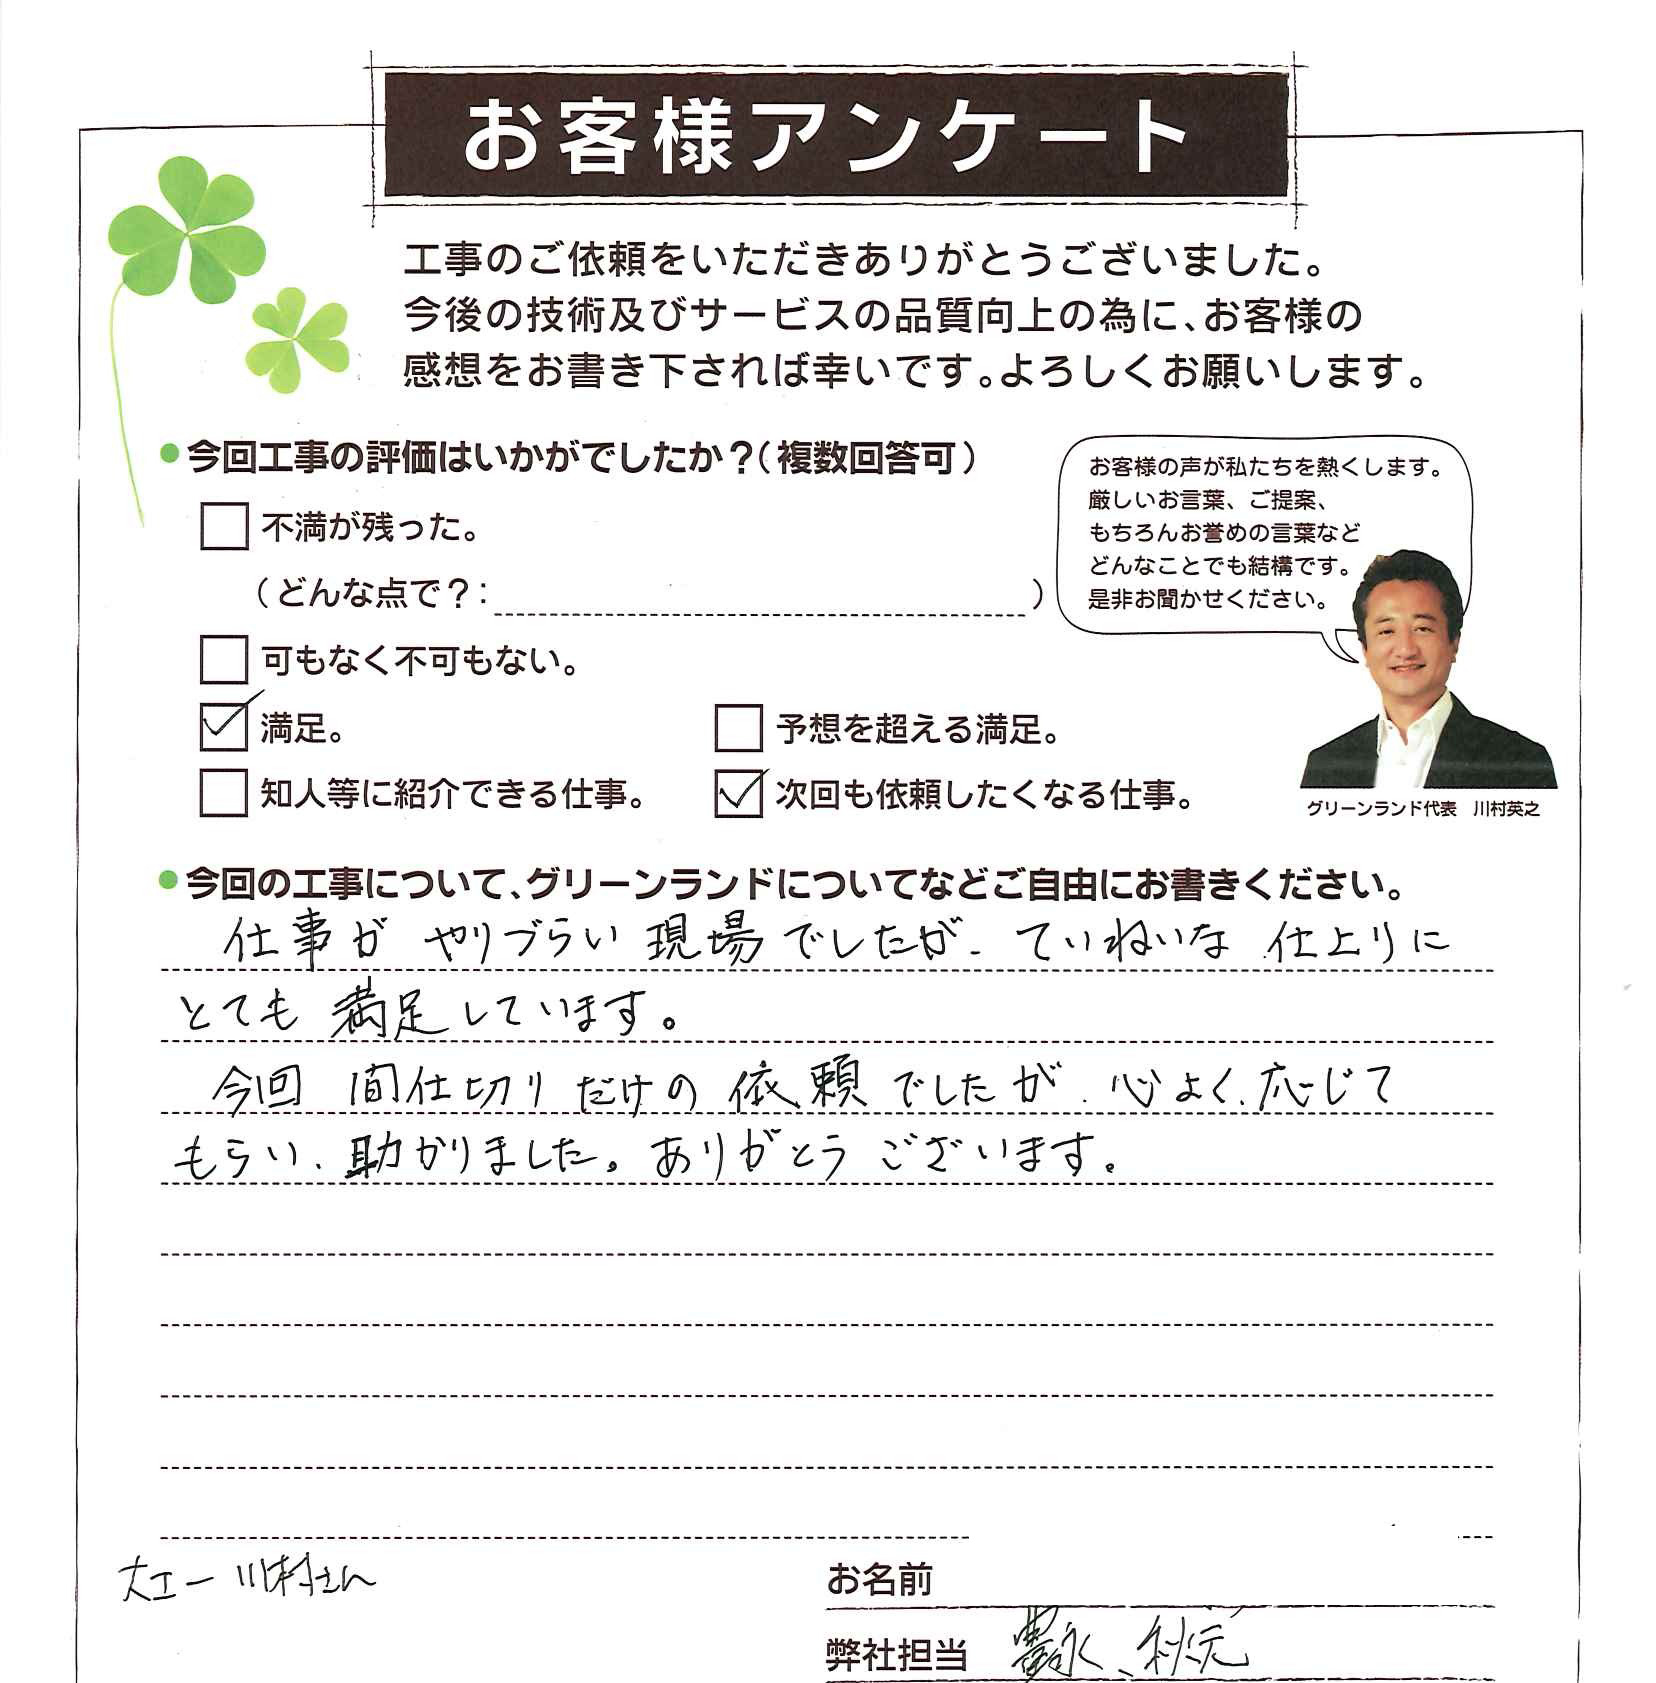 お客様アンケート
工事のご依頼をいただきありがとうございました。
今後の技術及びサービスの品質向上の為に、お客様の
感想をお書き下されば幸いです。よろしくお願いします。
●今回工事の評価はいかがでしたか？（複数回答可）
不満が残った。
（どんな点で？：　）
可もなく不可もない。
満足。
予想を超える満足。
知人等に紹介できる仕事。
次回も依頼したくなる仕事。
お客様の声が私たちを熱くします。
厳しいお言葉、ご提案、
もちろんお誉めの言葉など
どんなことでも結構です。
是非お聞かせください。
グリーンランド代表　川村英之
●今回の工事について、グリーンランドについてなどご自由にお書きください。
仕事がやりづらい現場でしたが、ていねいな仕上りに
とても満足しています。
今回間仕切りだけの依頼でしたが、心よく、応じて
もらい、助かりました。ありがとうございます。
大工ー川村さん
お名前
弊社担当　豊永、秋元